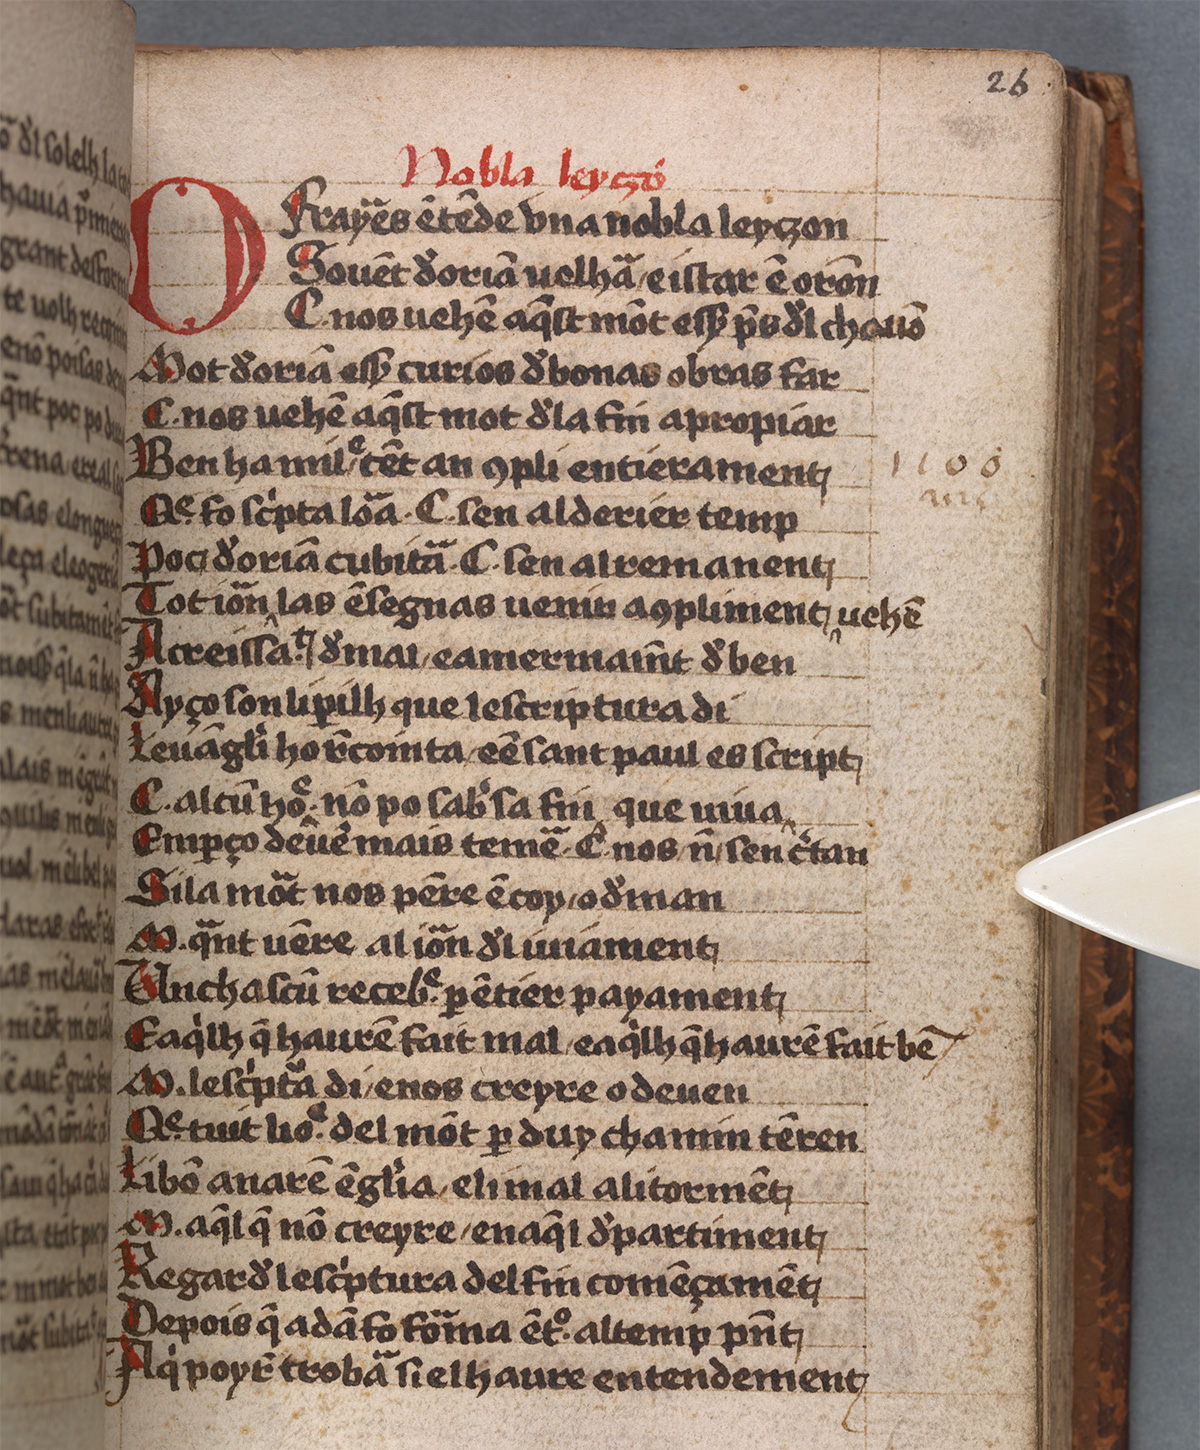 26
Nobla leyczō
O
Frayrēs ētēde vna nobla leyczon
Souēt deoriā uelhar e istar ē orōn
C. nos uehē aq̄st mōt esser ps dl chauō
Mot deoriā esser curios de bonas obras far
C. nos uehē aq̄st mot de la fin apropiar
Ben ha mil e cēt an ꝯpli entierament
Que fo scipta lōa. C. sen al derier temp
Poc deoriā cubitar. C. sen al remanent
Tot iōn las ēsegnas uenir a ꝯpliment uehē
Acreissa. de mal e amermamt de ben
Ayço son li perilh que lescriptura di
Leuāgli ho rcointa e sant paul es script
C. alcū ho. nō po saber sa fin que uiua
Emperço deuē mais temer C. nos n sen certan
Si la mōt nos pēre ē coy o deman
M. qānt uēre al iōn dl iuiament
Unchascū receb. per ētier payament
E aqilh q̄ haurē fait mal e aqilh q̄ haurē fait bē
M. lesciptā di e nos creyre o deuen
Que tuit ho. del mōt per duy chamin tēren
Li bō anarē ē glia e li mal a li tormēt
M. aq̄l q̄ nō creyre en aq̄l departiment
Regarde lescptura del fin comēçamēt
Depois q̄ adā fo fōrma ēt. al temp pnt
Aqi poyre trobar si el haure entendement
1100